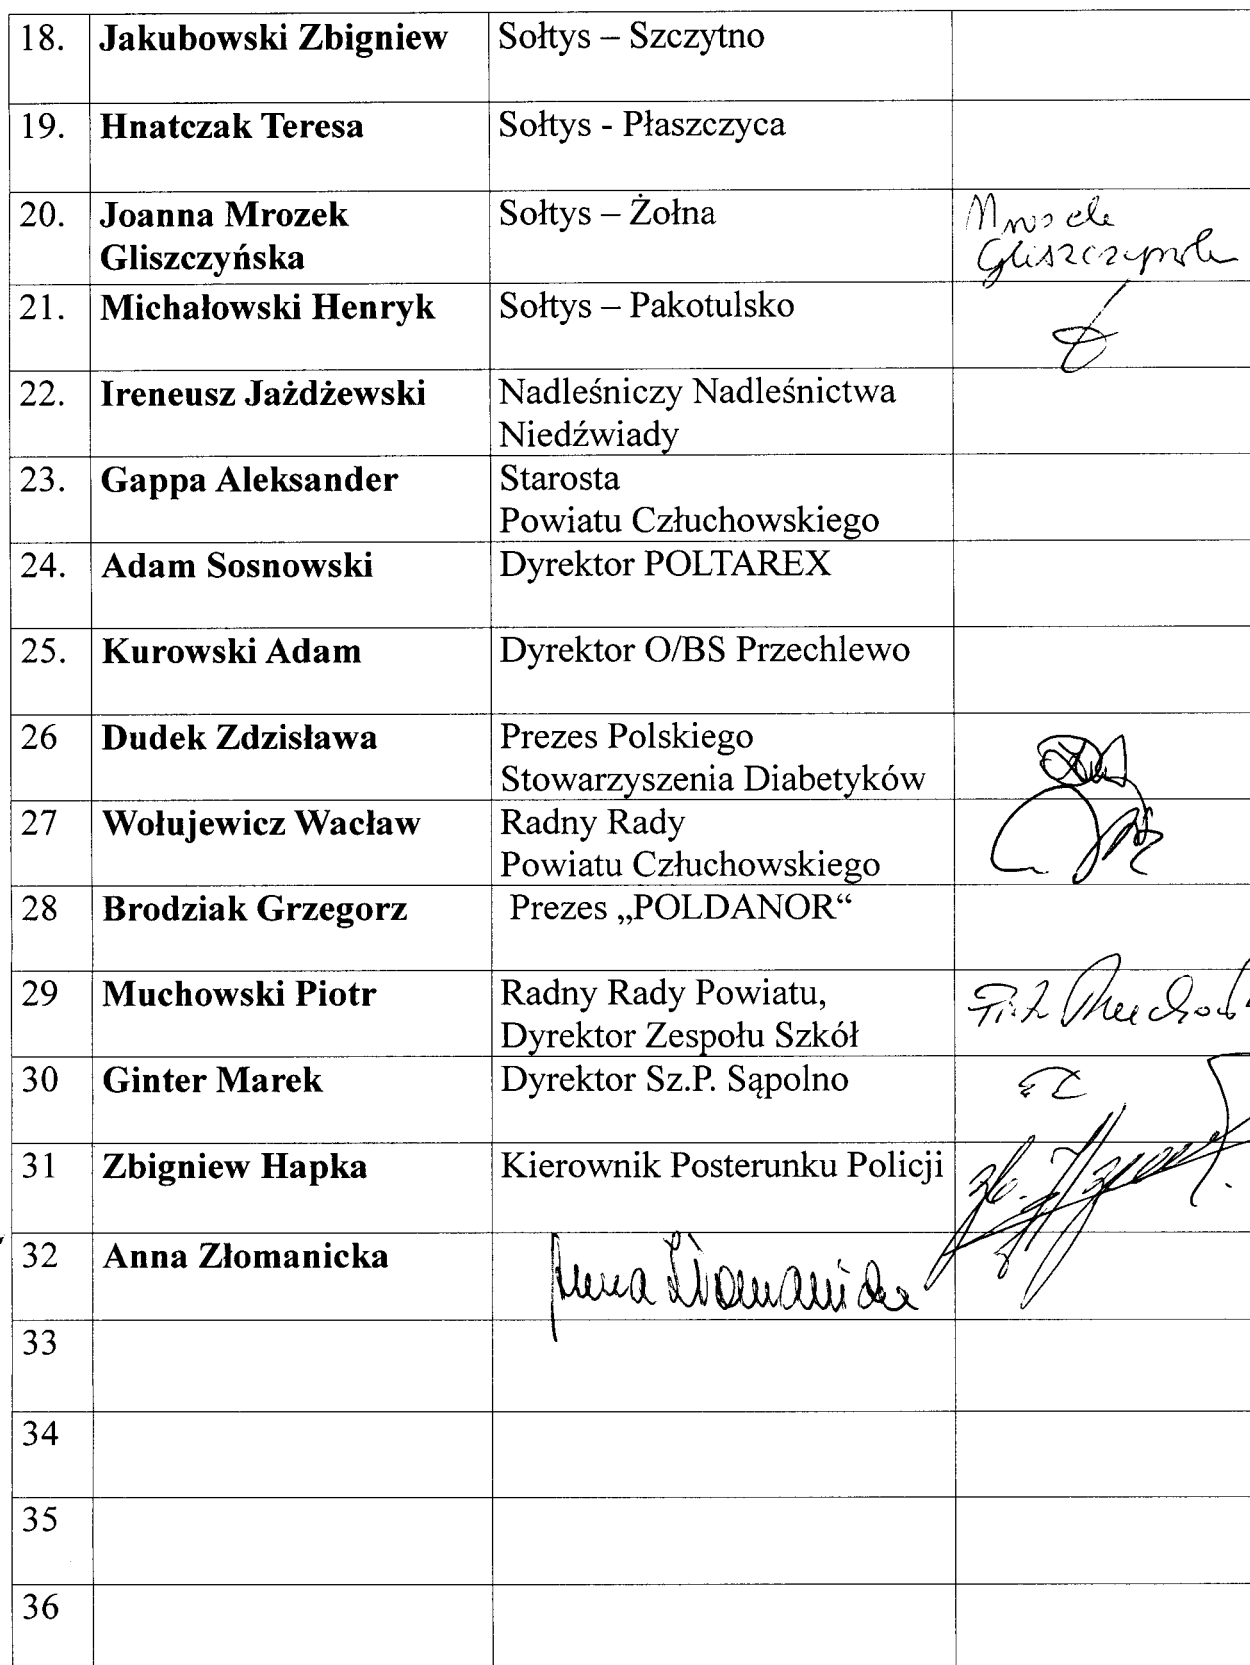 18. Jakubowski Zbigniew Sołtys – Szczytno
19. Hnatczak Teresa Sołtys - Płaszczyca
20. Joanna Mrozek Sołtys – Żołna
Gliszczyńska
21. Michałowski Henryk Sołtys – Pakotulsko
22. Ireneusz Jażdżewski Nadleśniczy Nadleśnictwa
Niedźwiady
23. Gappa Aleksander Starosta
Powiatu Człuchowskiego
24. Adam Sosnowski Dyrektor POLTAREX
25. Kurowski Adam Dyrektor O/BS Przechlewo
26 Dudek Zdzisława Prezes Polskiego
Stowarzyszenia Diabetyków
27 Wołujewicz Wacław Radny Rady
Powiatu Człuchowskiego
28 Brodziak Grzegorz Prezes „POLDANOR“
29 Muchowski Piotr Radny Rady Powiatu,
Dyrektor Zespołu Szkół
30 Ginter Marek Dyrektor Sz.P. Sąpolno
31 Zbigniew Hapka Kierownik Posterunku Policji
32 Anna Złomanicka Anna Złomanicka
33
34
35
36